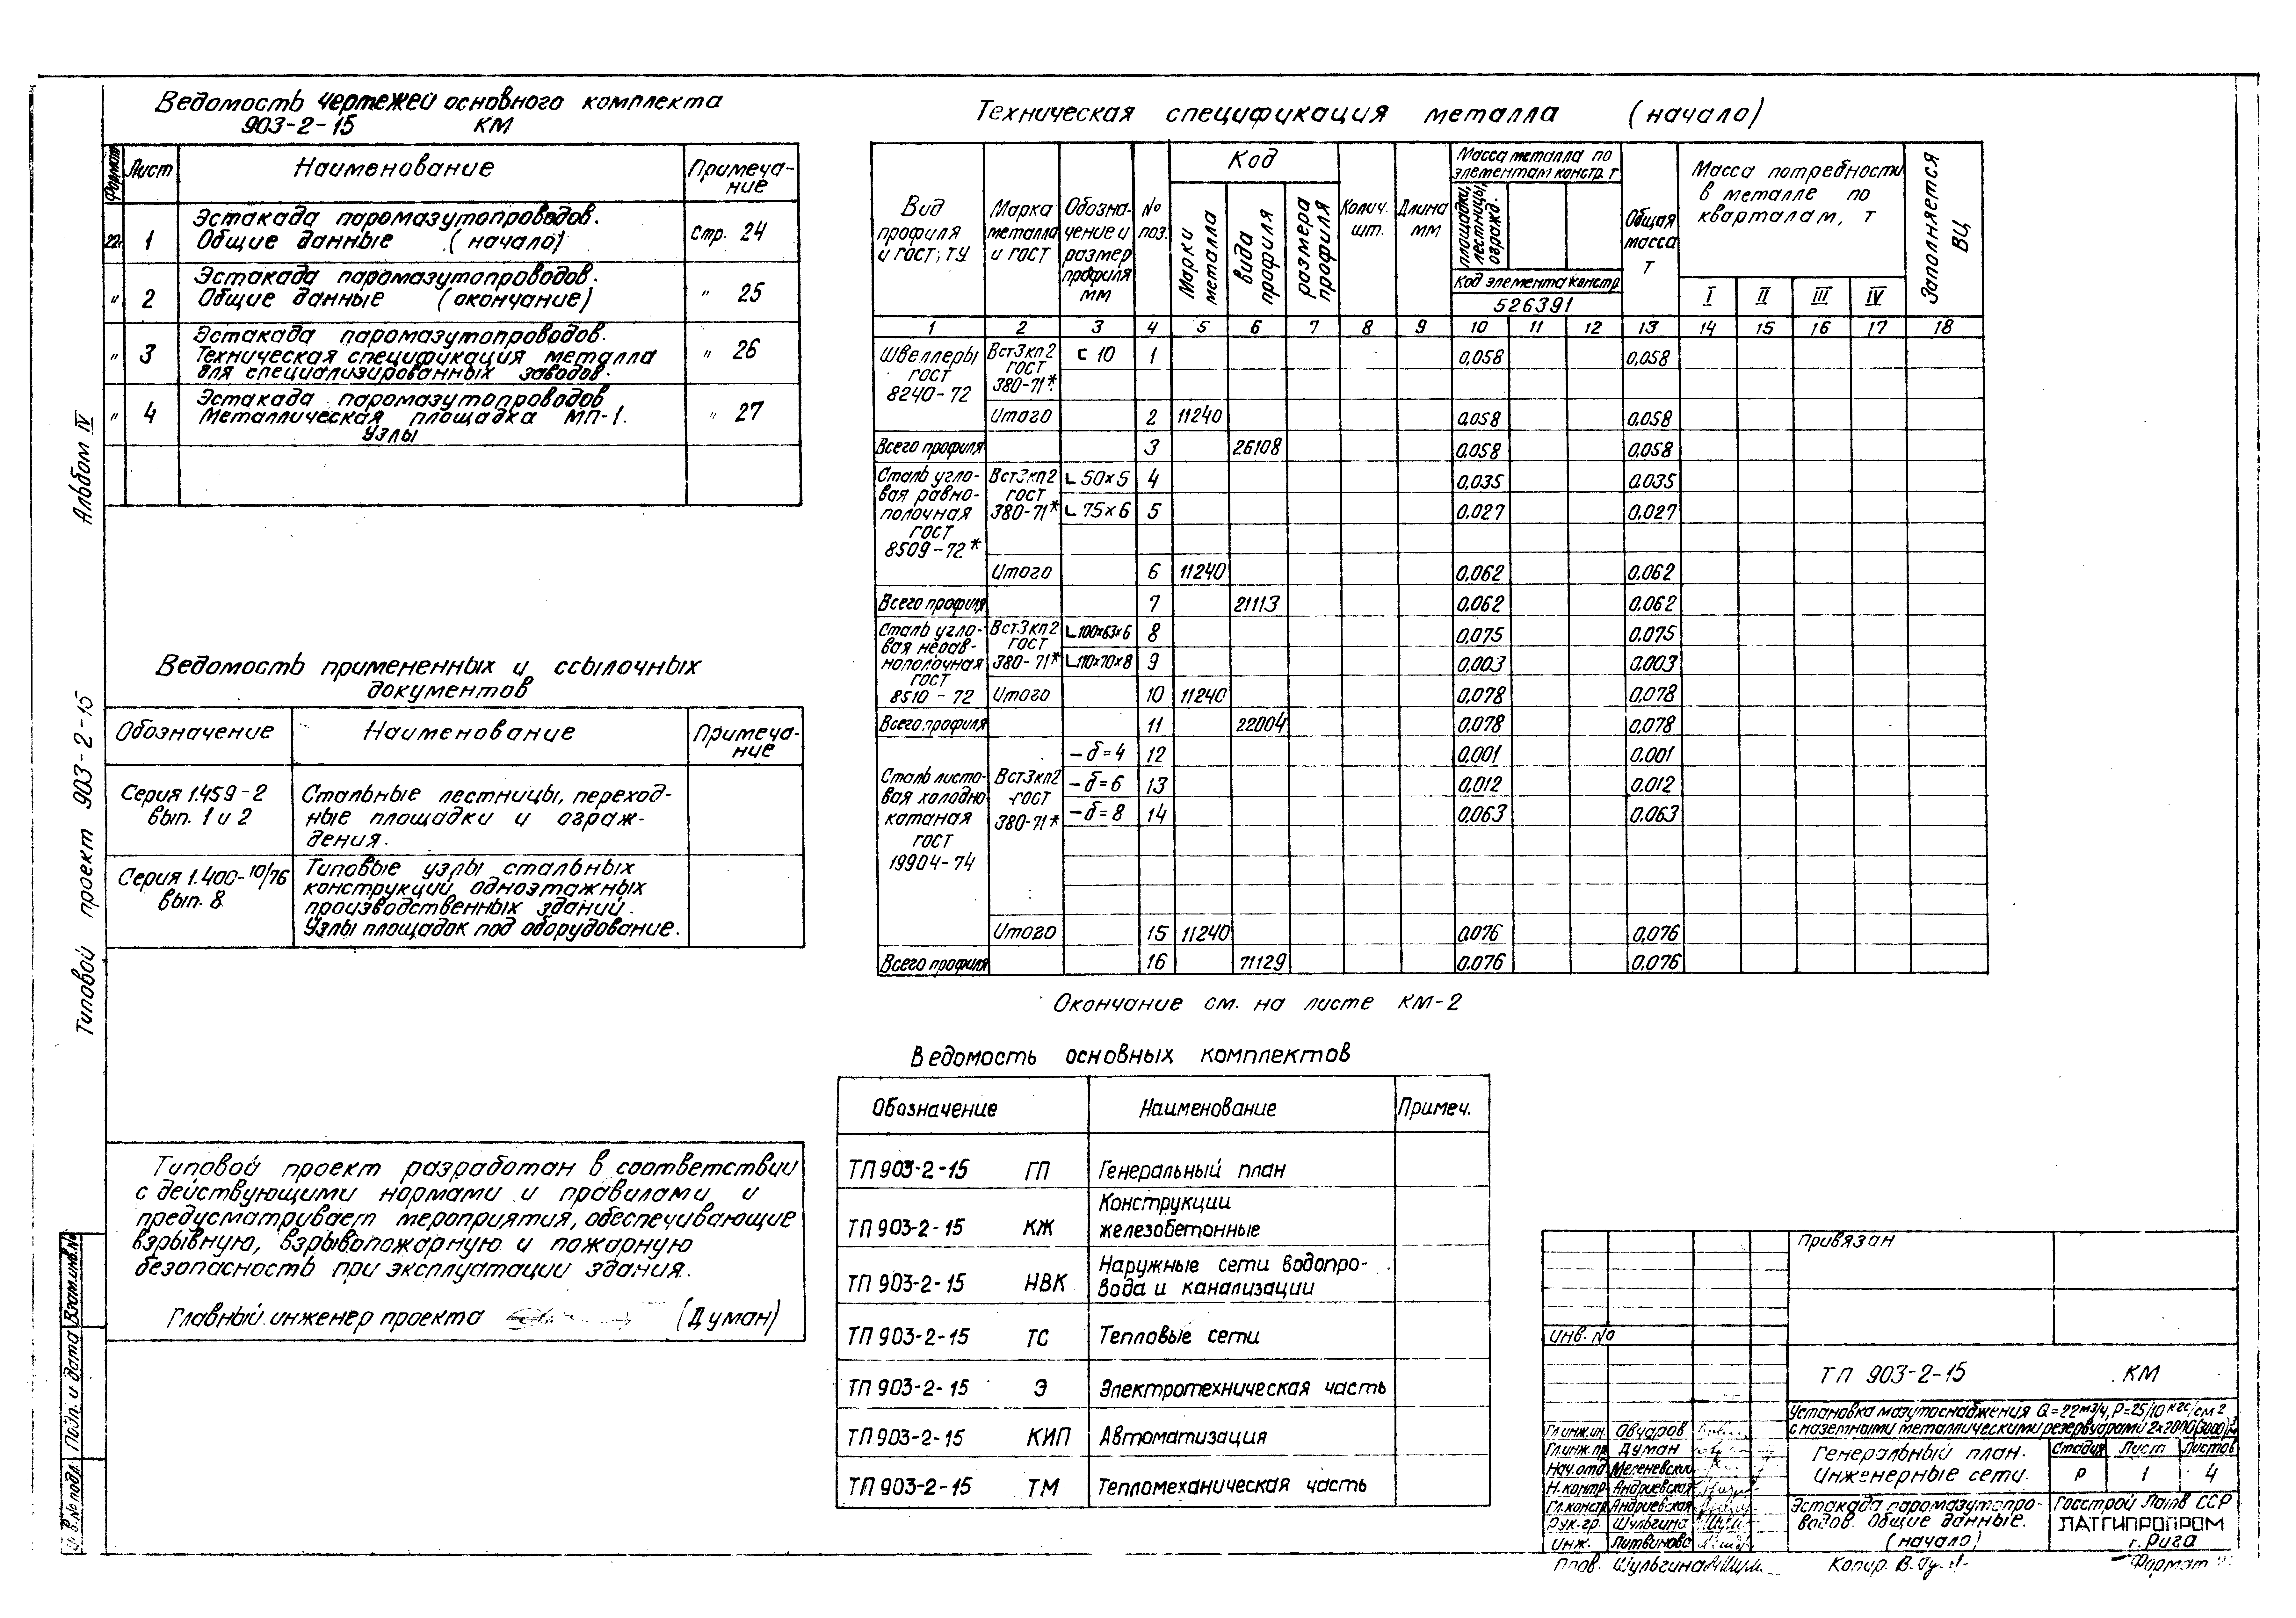 Ведомость чертежей основного комплекта
903-2-15 КМ
Формат Лист Наименование Примеча-
ние
22г 1 Эстакада паромазутопроводов.
Общие данные (начало) стр. 24
" 2 Эстакада паромазутопроводов.
Общие данные (окончание) " 25
" 3 Эстакада паромазутопроводов.
Техническая спецификация металла " 26
для специализированных заводов.
" 4 Эстакада паромазутопроводов
Металлическая площадка МП-1. " 27
Узлы
Альбом IV
Типовой проект 903-2-15
Ведомость примененных и ссылочных
документов
Обозначение Наименование Примеча-
ние
Серия 1.459-2 Стальные лестницы, переход-
вып. 1 и 2 ные площадки и ограж-
дения.
Серия 1.400-10/76 Типовые узлы стальных
вып. 8 конструкций одноэтажных
производственных зданий.
Узлы площадок под оборудование.
Типовой проект разработан в соответствии
с действующими нормами и правилами и
предусматривает мероприятия, обеспечивающие
взрывную, взрывопожарную и пожарную
безопасность при эксплуатации здания.
Главный инженер проекта (Думан)
Взам.инв.№
Подп. и дата
Инв.№ подл.
Техническая спецификация металла (начало)
Вид
профиля
и гост, ТУ
Марка
металла
и гост
Обозна-
чение и
размер
профиля
мм
№
поз.
Код
Марки
металла
вида
профиля
размера
профиля
Колич.
шт.
Длина
мм
Масса металла по
элементам констр. т
площадки,
лестницы,
огражд.
Код элемента констр.
526391
Общая
масса
т
Масса потребности
в металле по
кварталам, т
I II III IV
Заполняется
ВЦ
1 2 3 4 5 6 7 8 9 10 11 12 13 14 15 16 17 18
Швеллеры ВстЗкп2 С 10 1 0,058 0,058
гост гост
8240-72 380-71*
Итого 2 11240 0.058 0.058
Всего профиля 3 26108 0.058 0.058
Сталь угло- ВстЗкп2 L 50×5 4 0,035 0.035
вая равно- гост
полочная 380-71* L 75×6 5 0.027 0.027
гост
8509-72*
Итого 6 11240 0.062 0.062
Всего профиля 7 21113 0.062 0.062
Сталь угло- ВстЗкп2 L100×63×6 8 0.075 0.075
вая нерав- гост
нополочная 380-71* L110×70×8 9 0,003 0.003
гост
8510-72 Итого 10 11240 0,078 0,078
Всего профиля 11 22004 0.078 0,078
- δ=4 12 0.001 0.001
Сталь листо- ВстЗкп2 - δ=6 13 0,012 0.012
вая холодно гост
катаная 380-71* - δ=8 14 0.063 0.063
гост
19904-74
Итого 15 11240 0.076 0,076
Всего профиля 16 71129 0.076 0,076
Окончание см. на листе КМ-2
Ведомость основных комплектов
Обозначение Наименование Примеч.
ТП 903-2-15 ГП Генеральный план
Конструкции
ТП 903-2-15 КЖ железобетонные
Наружные сети водопро-
ТП 903-2-15 НВК вода и канализации
ТП 903-2-15 ТС Тепловые сети
ТП 903-2-15 Э Электротехническая часть
ТП 903-2-15 КИП Автоматизация
ТП 903-2-15 ТМ Тепломеханическая часть
Привязан
Инв. №
ТП 903-2-15 КМ
Установка мазутоснабжения Q=22м3/ч, Р=25/10 кгс/см2
с наземными металлическими резервуарами 2×2000(3000)м3
Гл.инж.ин. Овчаров
Гл.инж.пр. Думан
Нач.отд
Н.контр. Андриевская
Гл.констр. Андриевская
Рук.гр. Шульгина
Инж. Литвинова
Генеральный план.
Инженерные сети.
Стадия Лист Листов
Р 1 4
Эстакада паромазутопро-
водов. Общие данные.
(начало)
Госстрой Латв ССР
ЛАТГИПРОПРОМ
г. Рига
Пров. Шульгина
Копир. В.
Формат